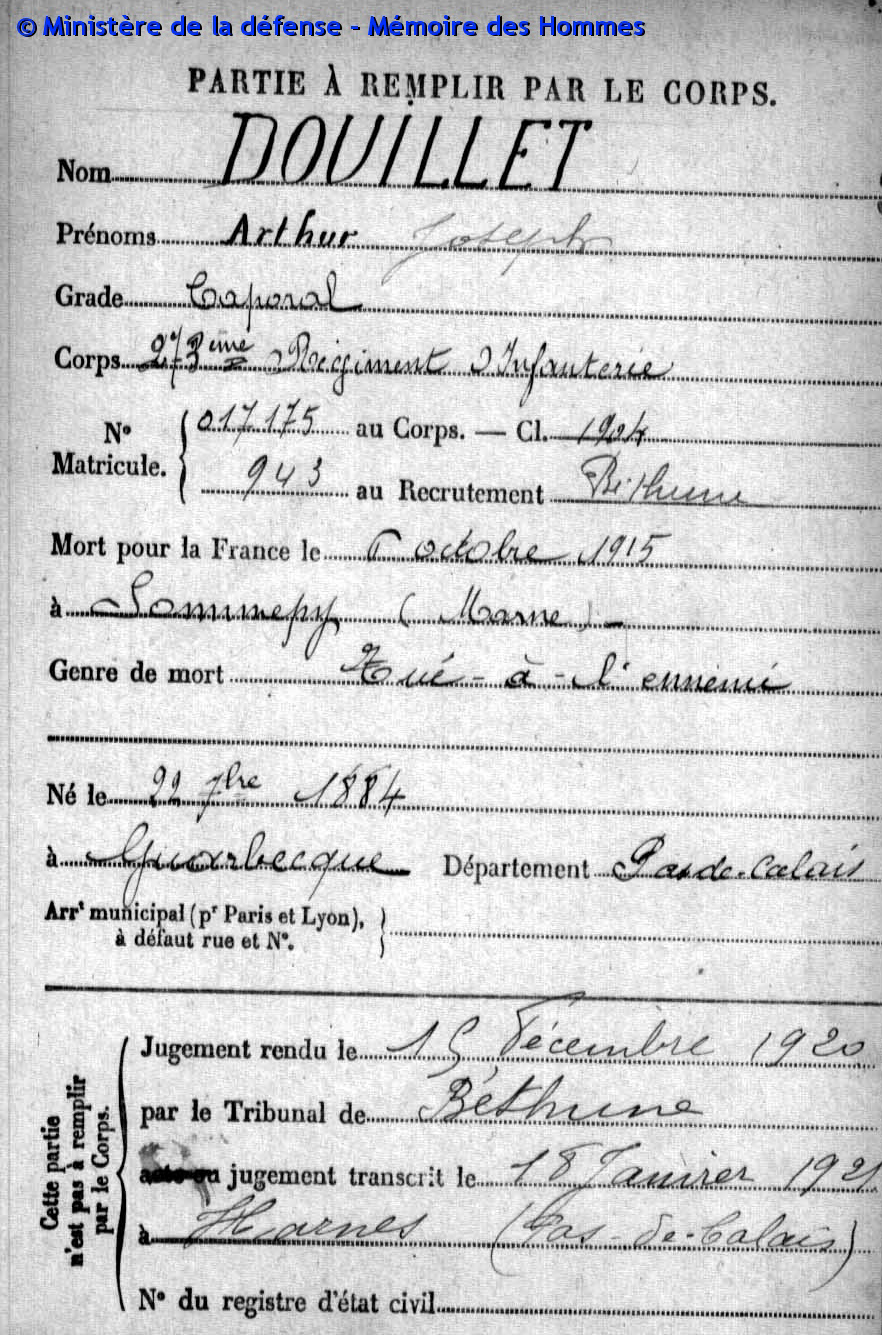 © Ministère de la défense - Mémoire des Hommes
PARTIE À REMPLIR PAR LE CORPS.
Nom DOUILLET
Prénoms Arthur Joseph
Grade Caporal
Corps 273ème Régiment d'Infanterie
No Matricule. { 017175 au Corps. — Cl. 1904
943 au Recrutement Béthune
Mort pour la France le 6 octobre 1915
à Sommepy (Marne) -
Genre de mort Tué - à - l'ennemi
Né le 22 7bre 1884
à Guarbecque Département Pas de-Calais
Arrt municipal (pr Paris et Lyon), à défaut rue et No. }
Cette partie n'est pas à remplir par le Corps. {
Jugement rendu le 15 Décembre 1920
par le Tribunal de Béthune
acte ou jugement transcrit le 18 Janvier 1921
à Harnes (Pas-de-Calais)
No du registre d'état civil